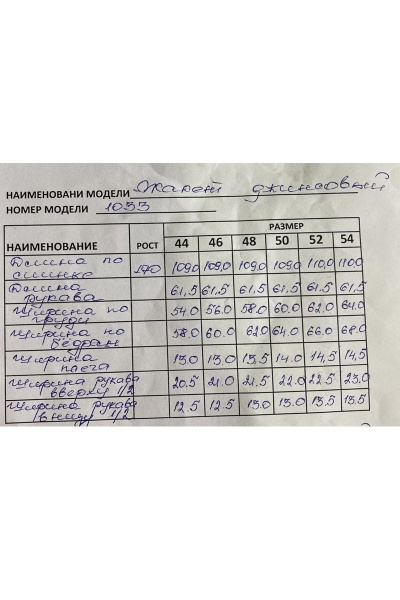 НАИМЕНОВАНИ МОДЕЛИ Жакет джинсовый
НОМЕР МОДЕЛИ 1033
НАИМЕНОВАНИЕ РОСТ РАЗМЕР
44 46 48 50 52 54
Длина по спинке 170 109,0 109,0 109,0 109,0 110,0 110,0
Длина рукава 61,5 61,5 61,5 61,5 61,5 61,5
Ширина по груди 54.0 56.0 58.0 60.0 62.0 64.0
Ширина по бедрам 58.0 60.0 62.0 64.0 66.0 68.0
Ширина плеча 13.0 13.0 13.5 14.0 14,5 14,5
Ширина рукава вверху 1/2 20.5 21.0 21.5 22.0 22.5 23.0
Ширина рукава внизу 1/2 12.5 12.5 13.0 13.0 13.5 13.5